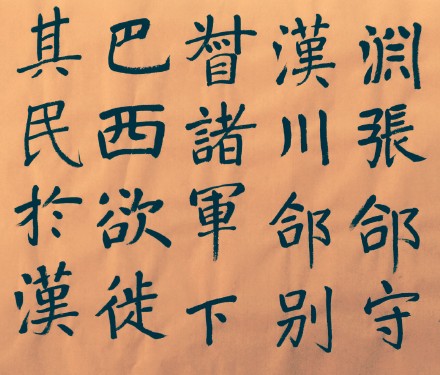 渊張郃守
漢川郃别
督諸軍下
巴西欲徙
其民於漢